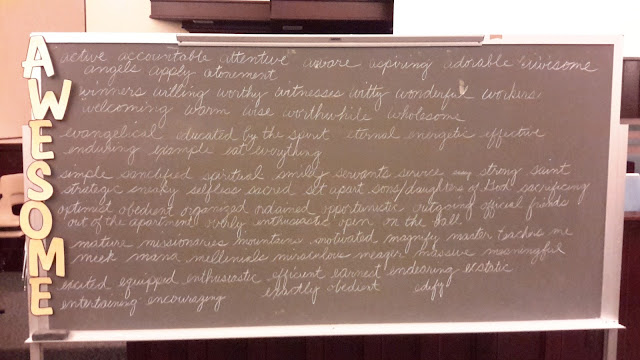 AWESOME
active accountable attentive aware aspiring adorable awesome
angels apply atonement
winners willing worthy witnesses witty wonderful workers
welcoming warm wise worthwhile wholesome
evangelical educated by the spirit eternal energetic effective
enduring example eat everything
simple sanctified spiritual smiley servants service strong saint
strategic sneaky selfless sacred set apart sons/daughters of God sacrificing
optimist obedient organized ordained opportunistic outgoing official friends
out of the apartment overly enthusiastic open on the ball
mature missionaries mountains motivated magnify master teachers me
meek mana millenials miraculous meager massive meaningful
excited equipped enthusiastic efficient earnest endearing ecstatic
exactly obedient edify
entertaining encouraging